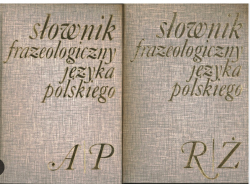 słownik
frazeologiczny
języka
polskiego
A-P
słownik
frazeologiczny
języka
polskiego
R/Ż